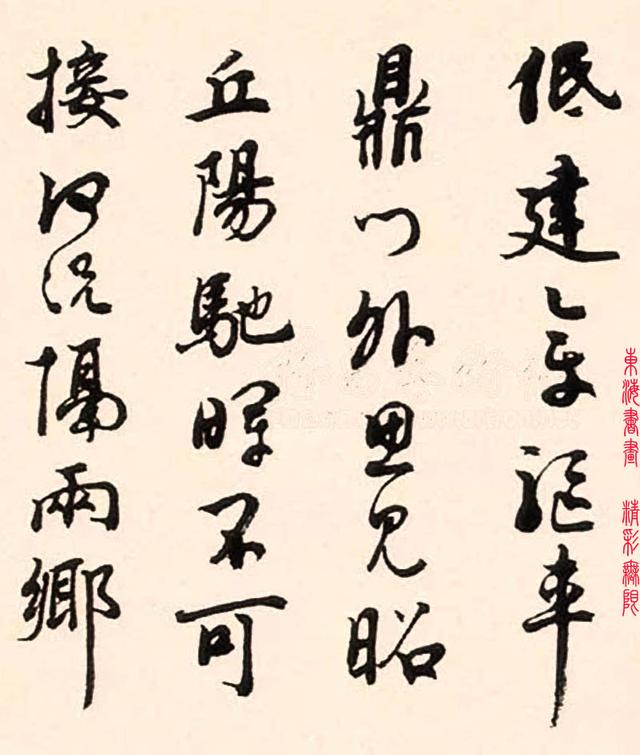 低建章驅車
鼎門外思見昭
丘陽馳暉不可
接何況隔兩鄉
東海書畫 精彩無限